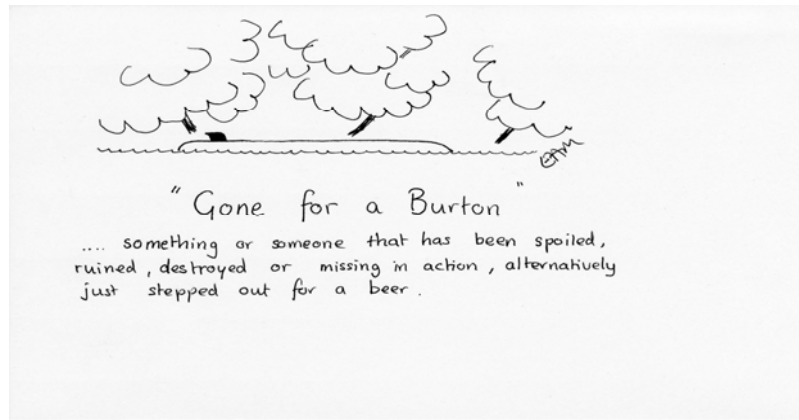 "Gone for a Burton"
.... something or someone that has been spoiled,
ruined, destroyed or missing in action, alternatively
just stepped out for a beer.